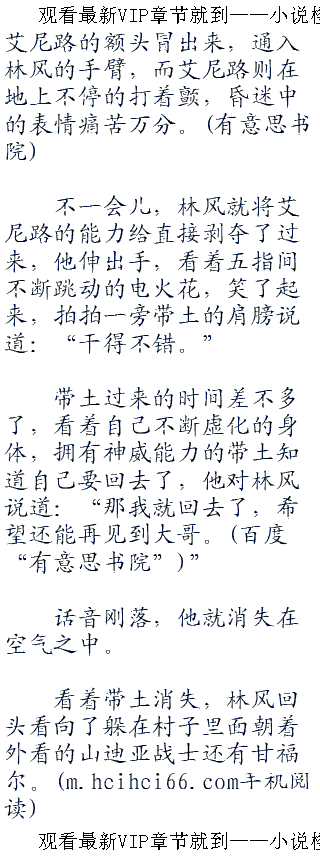 观看最新VIP章节就到一一小说
艾尼路的额头冒出来，通入
林风的手臂，而艾尼路则在
地上不停的打着颤，昏迷中
的表情痛苦万分。(有意思书
院)
不一会儿，林风就将艾
尼路的能力给直接剥夺了过
来，他伸出手，看着五指间
不断跳动的电火花，笑了起
来，拍拍一旁带土的肩膀说
道：“干得不错。”
带土过来的时间差不多
了，看着自己不断虚化的身
体，拥有神威能力的带土知
道自己要回去了，他对林风
说道：“那我就回去了，希
望还能再见到大哥。(百度
“有意思书院”)”
话音刚落，他就消失在
空气之中。
看着带土消失，林风回
头看向了躲在村子里面朝着
外看的山迪亚战士还有甘福
尔。(m.hcihci66.com手机阅
读)
观看最新VIP章节就到一一小说